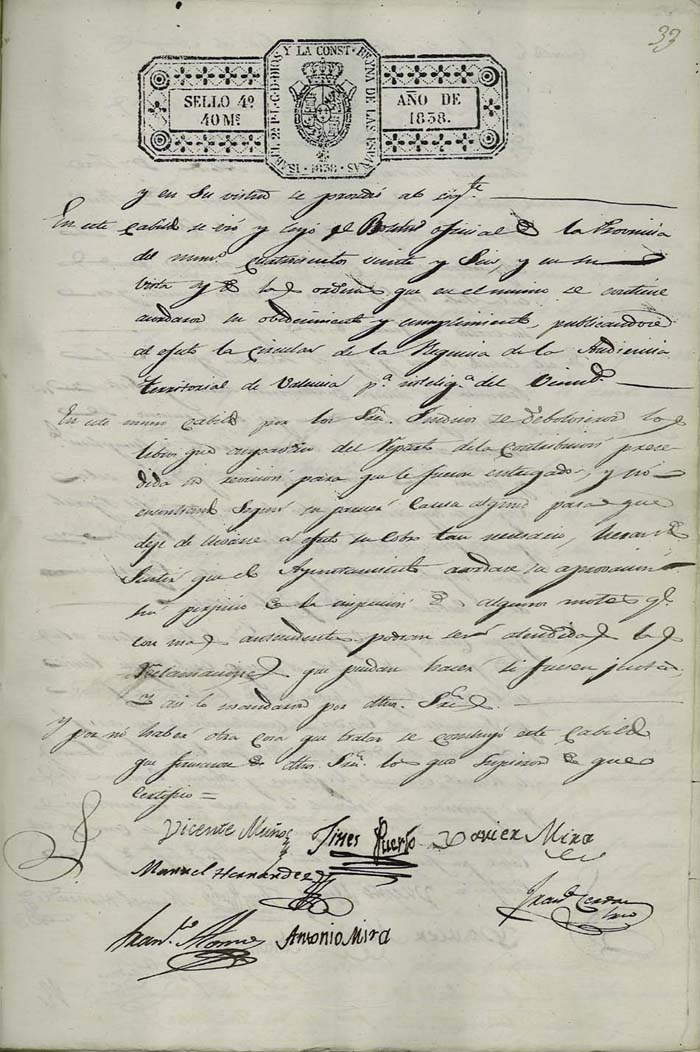 33
SELLO 4º
40 Ms
ISABEL 2ª P. L. G. D. DIOS Y LA CONST. REYNA DE LAS ESPAÑAS
1838
AÑO DE
1838.
y en su vista se
En este Cabildo se y leyó el Boletin oficial de la Provincia
del numº cuatrocientos veinte y Seis, y en su
vista y de las ordenes que en el mismo se contiene
acordaron su obedecimiento y cumplimiento, publicandose
al efecto la Circular de la Regencia de la Audiencia
territorial de Valencia pª inteligª del Vecindº
En este mismo Cabildo por los Sres. Sindicos se debolvieron los
libros que del Reparto de la Contribucion
para que le fueron entregados, y no
encontrando Segun su causa alguna para que
deje de llevarse a efecto su Cobro tan necesario,
que el Ayuntamiento acordase su aprovacion
sin perjuicio de la de algunos
con mas antecedentes podran ser atendidas las
Reclamaciones que puedan hacer si fuesen justas,
y asi lo mandaron por dthos. Sres.
Y por no haber otra cosa que tratar se concluyó este Cabildo
que firmaron de dthos Sres. los que Supieron de que
Certifico =
Vicente Muñoz Gines Puerto Xavier Mira
Manuel Hernandez
Franco Antonio Mira